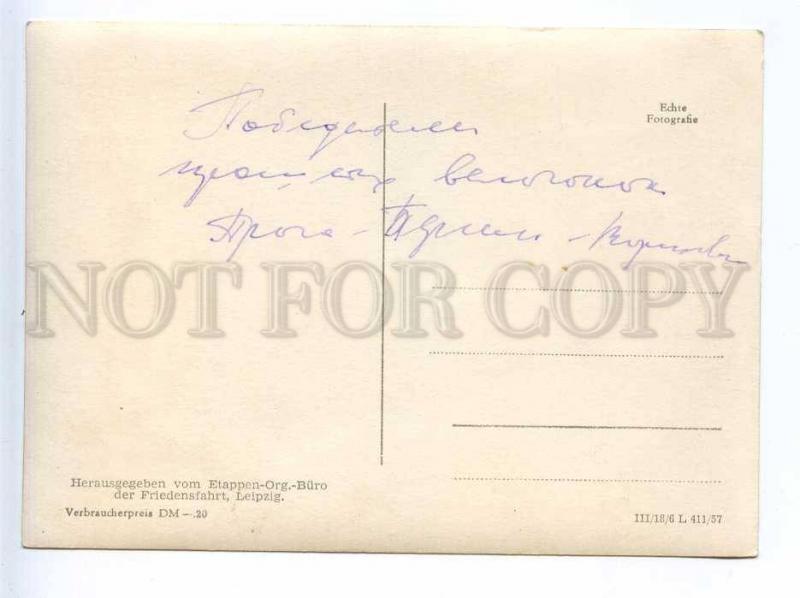 Echte
Fotografie
Победители
прошлых велогонок
Прага - Берлин - Варшава
Herausgegeben vom Etappen-Org.-Büro
der Friedensfahrt, Leipzig.
Verbraucherpreis DM —.20
III/18/6 L 411/57
NOT FOR COPY